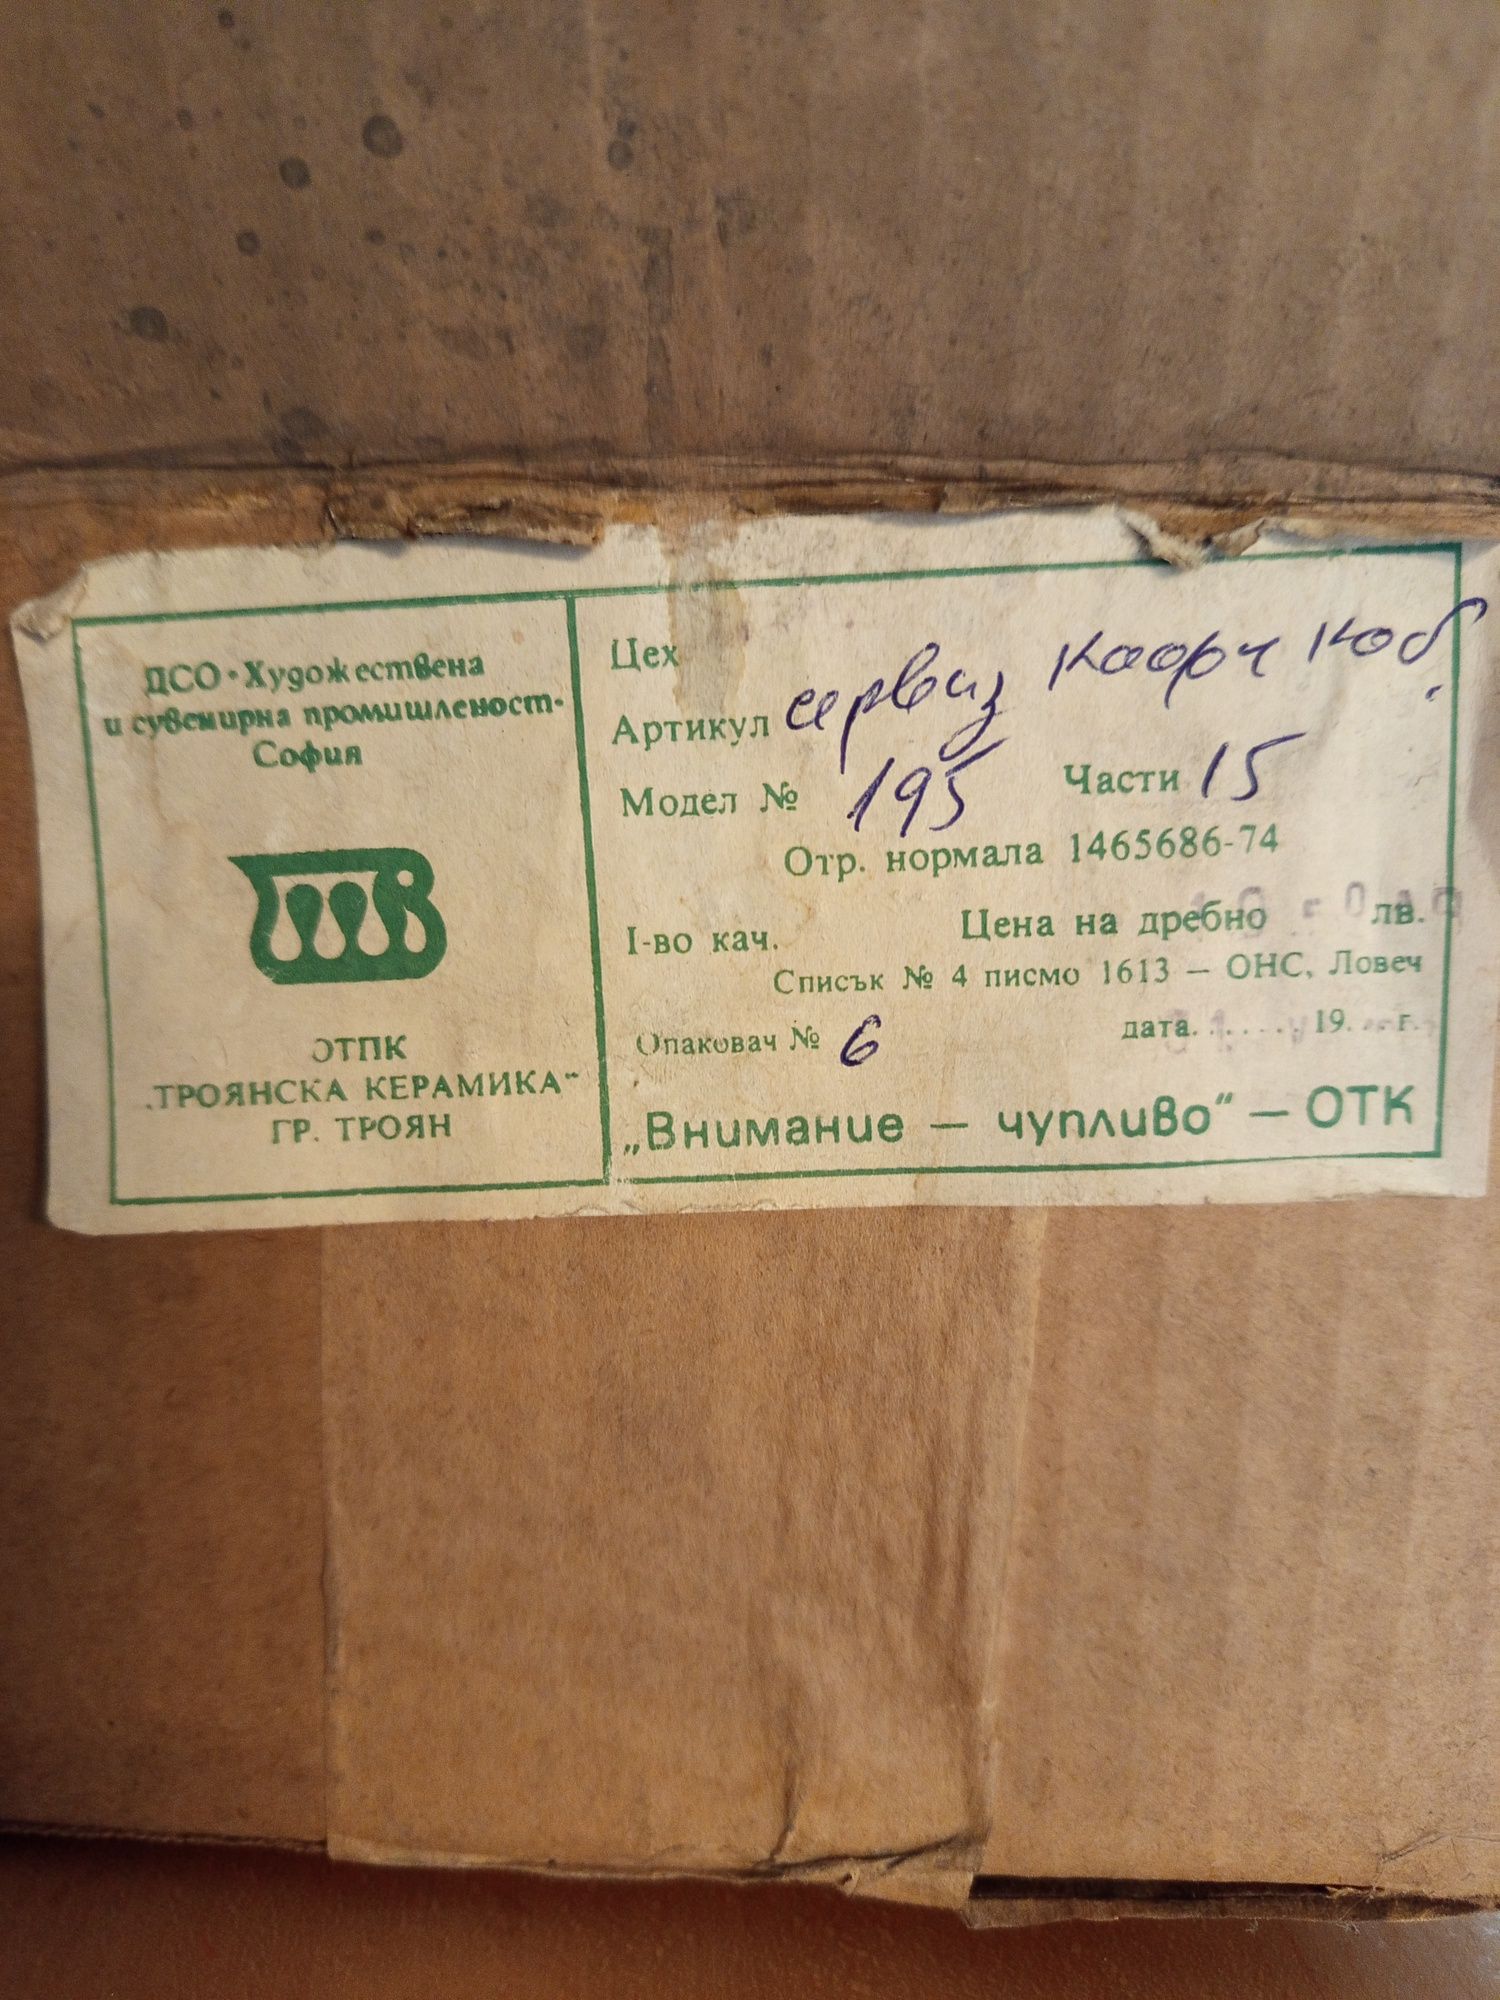 ДСО • Художествена
и сувенирна промишленост-
София
ОТПК
„ТРОЯНСКА КЕРАМИКА“
ГР. ТРОЯН
Цех
Артикул сервиз
Модел № 195 Части 15
Отр. нормала 1465686-74
I-во кач. Цена на дребно лв.
Списък № 4 писмо 1613 — ОНС, Ловеч
Опаковач № 6 дата....... 19... г.
„Внимание — чупливо“ — ОТК